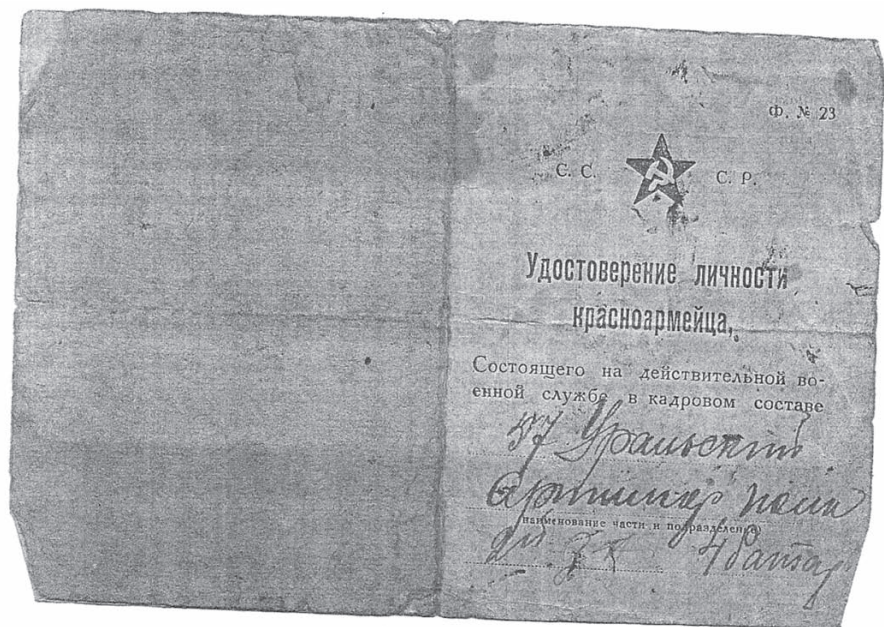 Ф. № 23
С. С. С. Р.
Удостоверение личности
красноармейца,
Состоящего на действительной во-
енной службе в кадровом составе
57 Уральский
Артиллер полк
(наименование части и подразделения)
4 батар